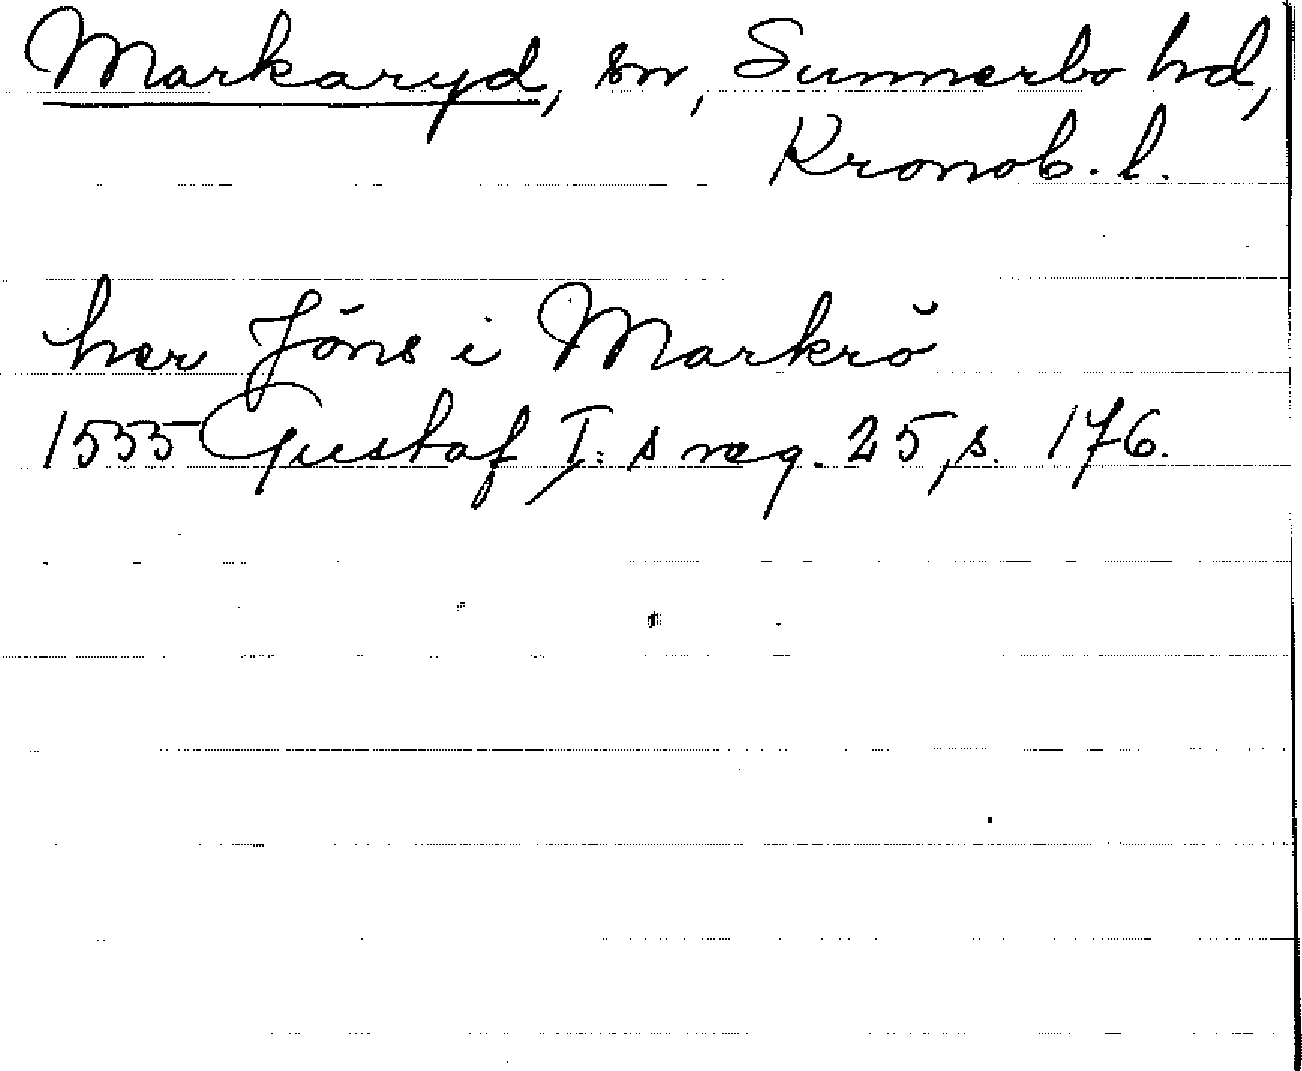 Markaryd, sn, Sunnerbo hd,
Kronob. l.
her Jöns i Markrö
1555 Gustaf I:s reg. 25, s. 176.